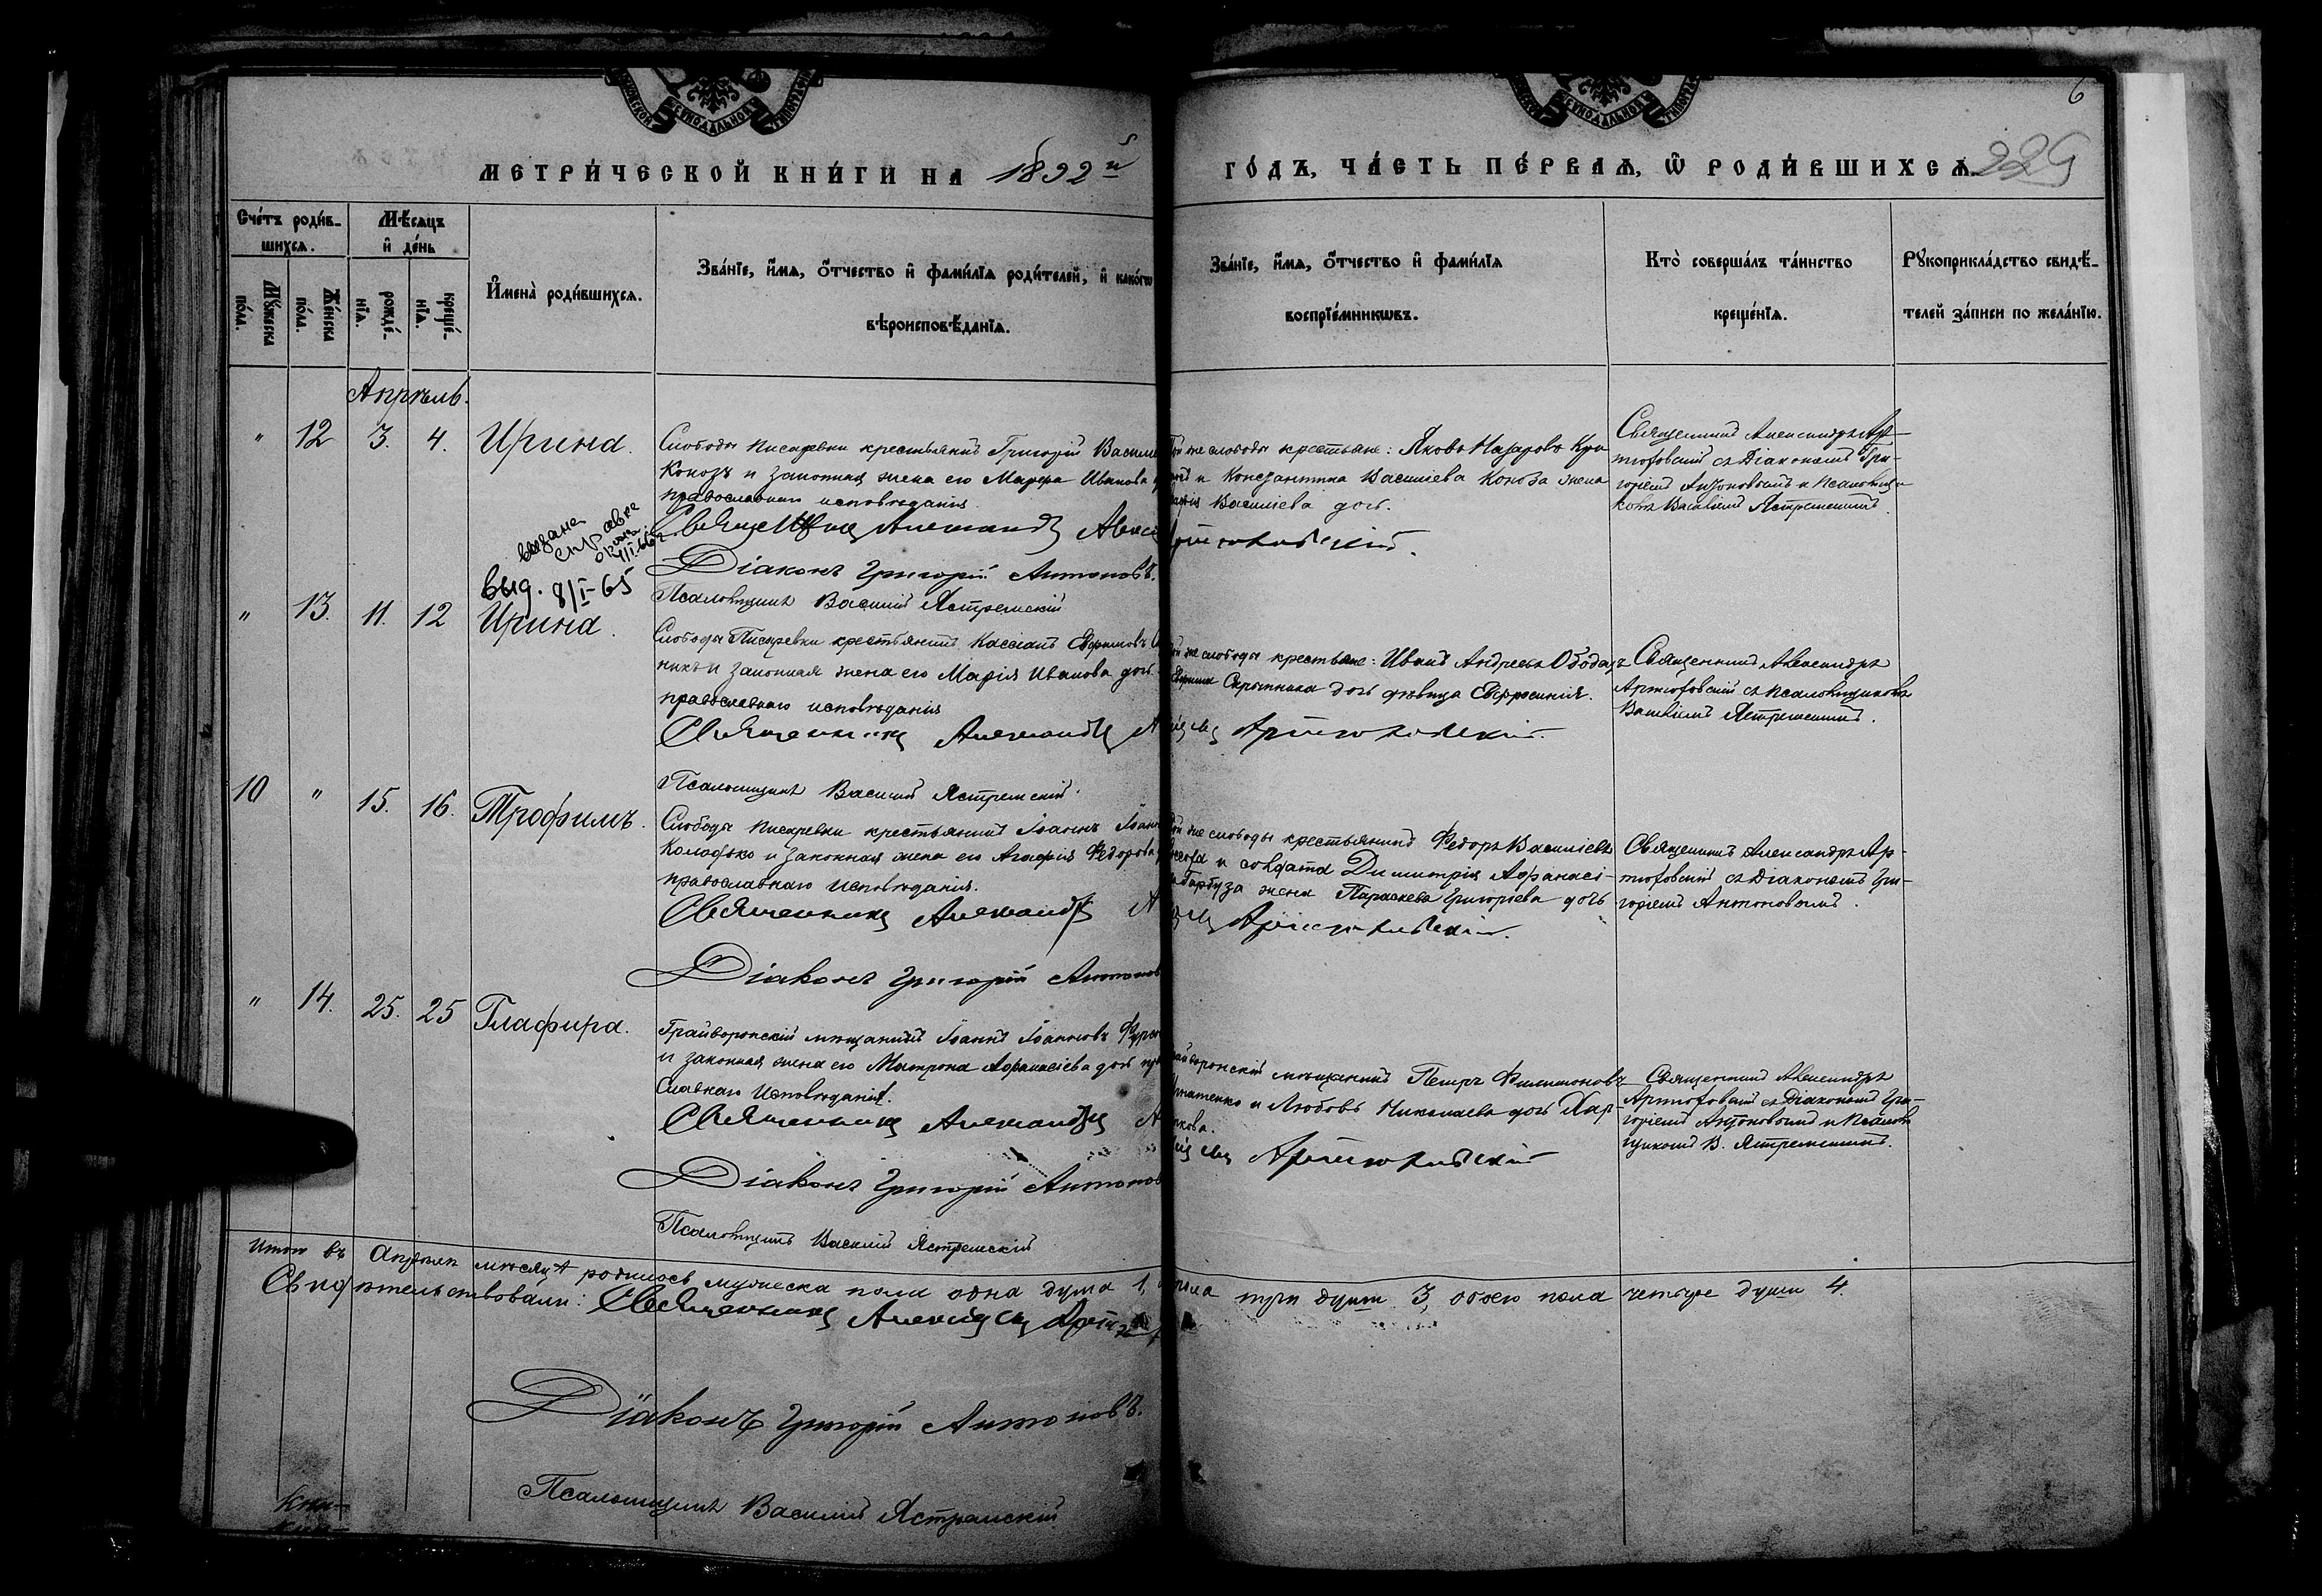 МЕТРИ́ЧЕСКОЙ КНИ́ГИ НА 1892 й
ГО́ДЪ, ЧА́СТЬ ПЕ́РВАѦ, Ѡ҆ РОДИ́ВШИХСѦ.
6
229
Сче́тъ роди́в-
шихсѧ.
Мѣ́сѧцъ
и҆ де́нь
Мꙋ́жеска
по́ла.
Же́нска
по́ла.
рожде́-
нїѧ.
креще́-
нїѧ.
И҆мена̀ роди́вшихсѧ.
Зва́нїе, и҆́мѧ, ѻ҆́тчество и҆ фами́лїѧ роди́телей, и҆ како́гѡ
вѣроисповѣ́данїѧ.
Зва́нїе, и҆́мѧ, ѻ҆́тчество и҆ фами́лїѧ
воспрїе́мникѡвъ.
Кто̀ соверша́лъ та́инство
креще́нїѧ.
Рꙋкоприкла́дство свидѣ́-
телей за́писи по жела́нїю.
Апрѣль.
" 12 3. 4. Ирина.
Слободы Писаревки крестьянинъ Григорій Василь
Конозъ и законная жена его Марѳа Иванова
православнаго исповѣданія
Священникъ Александръ Алексѣ
Діаконъ Григорій Антоновъ.
Псаломщикъ Василій Ястремскій
же слободы крестьяне: Яковъ Назаровъ
и Константина Васильева Коноза жена
Васильева дочь.
Артюховскій.
Священникъ Александръ Ар-
тюховскій съ Діакономъ Гри-
горіемъ Антоновымъ и Псаломщи-
комъ Василіемъ Ястремскимъ.
выдана
справка
4/I-66
выд. 8/I-65
" 13. 11. 12 Ирина.
Слободы Писаревки крестьянинъ Кассіанъ Ефимовъ
никъ и законная жена его Марія Иванова дочь
православнаго исповѣданія
Священникъ Александръ А
Псаломщикъ Василій Ястремскій.
же слободы крестьяне: Иванъ Андреевъ
Скрынника дочь дѣвица Евфросинія.
Артюховскій.
Священникъ Александръ
Артюховскій съ Псаломщикомъ
Василіемъ Ястремскимъ.
10 " 15. 16. Трофимъ.
Слободы Писаревки крестьянинъ Іоаннъ Іоанн
Колодько и законная жена его Агафія Ѳедорова
православнаго исповѣданія.
Священникъ Александръ А
Діаконъ Григорій Антонов
же слободы крестьянинъ Ѳедоръ Васильевъ
и солдата Димитрія Афанасі-
Гарбуза жена Параскева Григорьева дочь
Артюховскій.
Священникъ Александръ Ар-
тюховскій съ Діакономъ Гри-
горіемъ Антоновымъ.
" 14. 25. 25 Глафира.
Грайворонскій мѣщанинъ Іоаннъ Іоанновъ
и законная жена его Матрона Афанасіева дочь пра
славнаго исповѣданія.
Священникъ Александръ А
Діаконъ Григорій Антонов
Псаломщикъ Василій Ястремскій
айворонскій мѣщанинъ Петръ Филимоновъ
Игнатенко и Любовь Николаева дочь Хар-
кова.
Артюховскій
Священникъ Александръ
Артюховскій съ Діакономъ Гри-
горіемъ Антоновымъ и Псалом-
щикомъ В. Ястремскимъ.
Итого въ Апрѣлѣ мѣсяцѣ родилось мужеска пола одна душа 1,
пола три души 3, обоего пола четыре души 4.
Свидѣтельствовали: Священникъ
Діаконъ Григорій Антоновъ.
Псаломщикъ Василій Ястремскій